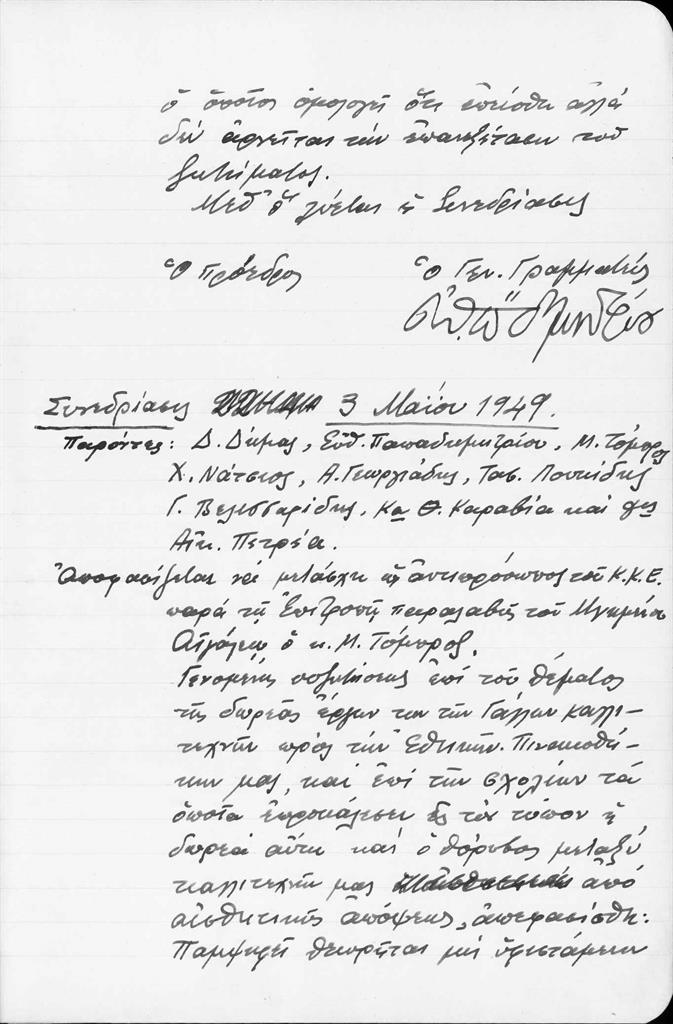 ὁ ὁποῖος ὁμολογεῖ ὅτι ἐπείσθη ἀλλά
δέν ἀρνεῖται τήν ἐπανεξέτασιν τοῦ
ζητήματος.
Μεθ' ὅ λύεται ἡ Συνεδρίασις
Ὁ Πρόεδρος Ὁ Γεν. Γραμματεύς
Συνεδρίασις 3 Μαΐου 1949.
Παρόντες: Δ. Δήμας, Εὐθ. Παπαδημητρίου, Μ. Τόμπρος
Χ. Νάτσιος, Α. Γεωργιάδης, Τας. Λουκίδης
Γ. Βελισσαρίδης, Κα Θ. Καραβία καί Δες
Αἰκ. Πετρέα.
Ἀποφασίζεται νά μετάσχη ὡς ἀντιπρόσωπος τοῦ Κ.Κ.Ε.
παρά τῇ Ἐπιτροπῇ παραλαβῆς τοῦ Μνημείου
Αἰγάλεω ὁ κ. Μ. Τόμπρος.
Γενομένης συζητήσεως ἐπί τοῦ θέματος
τῆς δωρεᾶς ἔργων των τῶν Γάλλων καλλι-
τεχνῶν πρός τήν Ἐθνικήν Πινακοθή-
κην μας, καί ἐπί τῶν σχολίων τά
ὁποῖα ἐπροκάλεσεν εἰς τόν τόπον ἡ
δωρεά αὕτη καί ὁ θόρυβος μεταξύ
καλλιτεχνῶν μας ἀπό
αἰσθητικῆς ἀπόψεως, ἀπεφασίσθη:
Παμψηφεί θεωρεῖται μή ὑφιστάμενον